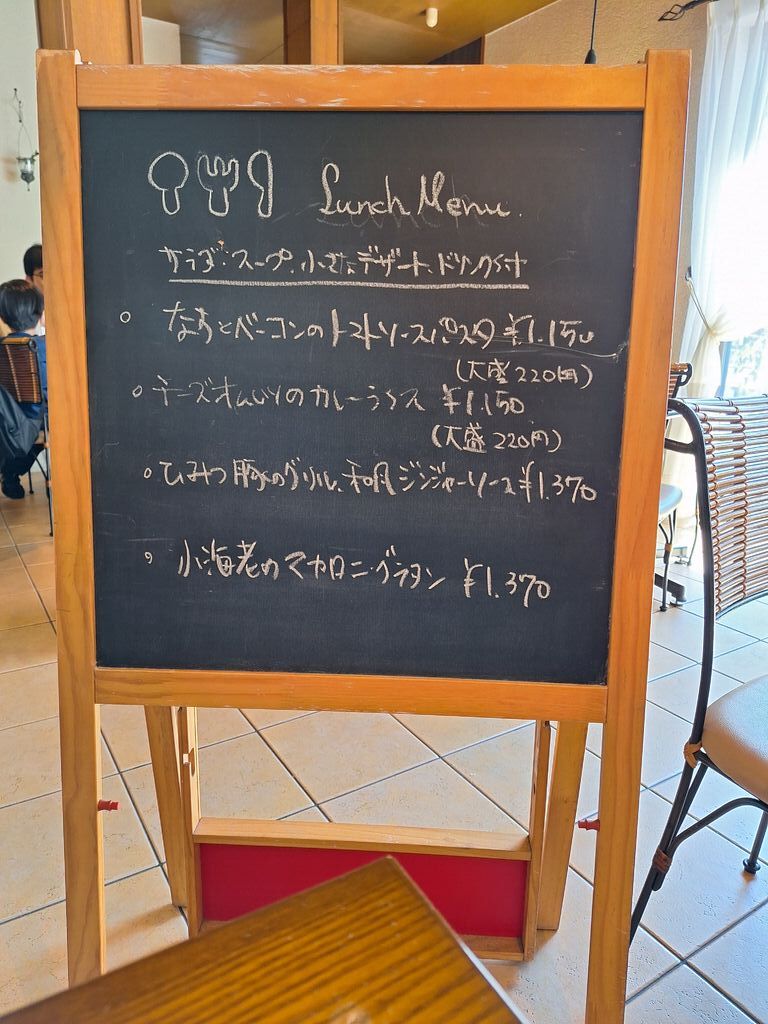 Lunch Menu.
サラダ・スープ、小さなデザート、ドリンク付
○ なすとベーコンのトマトソースパスタ ¥1.150
(大盛220円)
○ チーズオムレツのカレーライス ¥1.150
(大盛220円)
○ ひみつ豚のグリル、和風ジンジャーソース ¥1.370
○ 小海老のマカロニ・グラタン ¥1.370